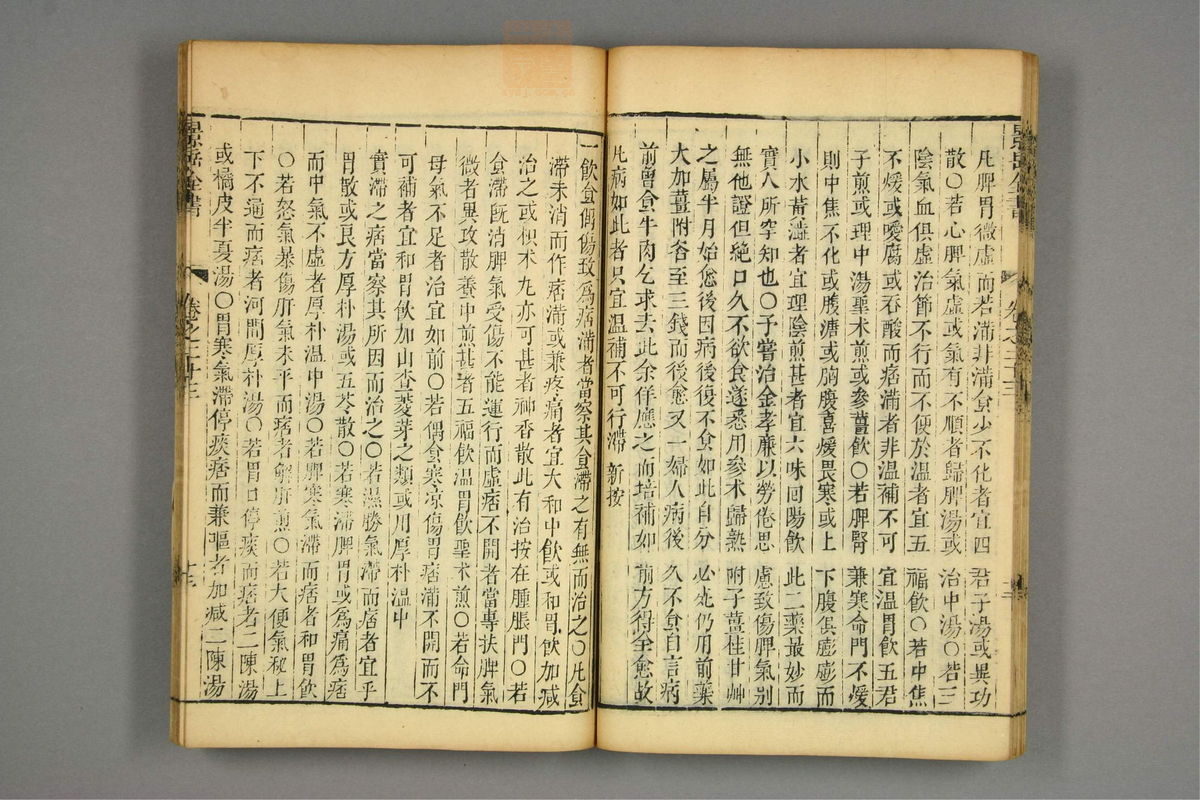 凡脾胃微虛而若滿非滿食少不化者宜四君子湯或異功
散〇若心脾氣虛或氣有不順者歸脾湯或治中湯〇若三
陰氣血俱虛治節不行而不便於溫者宜五福飲〇若中焦
不煖或噯腐或吞酸而痞滿者非溫補不可宜溫胃飲五君
子煎或理中湯聖术煎或參薑飲〇若脾腎兼寒命門不煖
則中焦不化或腹溏或胸腹喜煖畏寒或上下腹俱膨膨而
小水黃澁者宜理陰煎甚者宜六味囘陽飲此二藥最妙而
實人所罕知也〇予嘗治金孝廉以勞倦思慮致傷脾氣別
無他證但絕口久不欲食遂悉用參术歸熟附子薑桂甘艸
之屬半月始愈後因病後復不食如此自分必死仍用前藥
大加薑附各至三錢而後愈又一婦人病後久不食自言病
前曾食牛肉乞求去此余佯應之而培補如前方得全愈故
凡病如此者只宜溫補不可行滯 新按
一飲食偶傷致爲痞滿者當察其食滯之有無而治之〇凡食
滯未消而作痞滿或兼疼痛者宜大和中飲或和胃飲加減
治之或枳术丸亦可甚者神香散此有治按在腫脹門〇若
食滯旣消脾氣受傷不能運行而虛痞不開者當專扶脾氣
微者異攻散養中煎甚者五福飲溫胃飲聖术煎〇若命門
母氣不足者治宜如前〇若偶食寒涼傷胃痞滿不開而不
可補者宜和胃飲加山查麥芽之類或用厚朴溫中
實滯之痞當察其所因而治之〇若濕勝氣滯而痞者宜平
胃散或良方厚朴湯或五苓散〇若寒滯脾胃或爲痛爲痞
而中氣不虛者厚朴溫中湯〇若脾寒氣滯而痞者和胃飲
〇若怒氣暴傷肝氣未平而痞者解肝煎〇若大便氣秘上
下不通而痞者河間厚朴湯〇若胃口停痰而痞者二陳湯
或橘皮半夏湯〇胃寒氣滯停痰痞而兼嘔者加減二陳湯
景岳全書
卷之二十三
十三